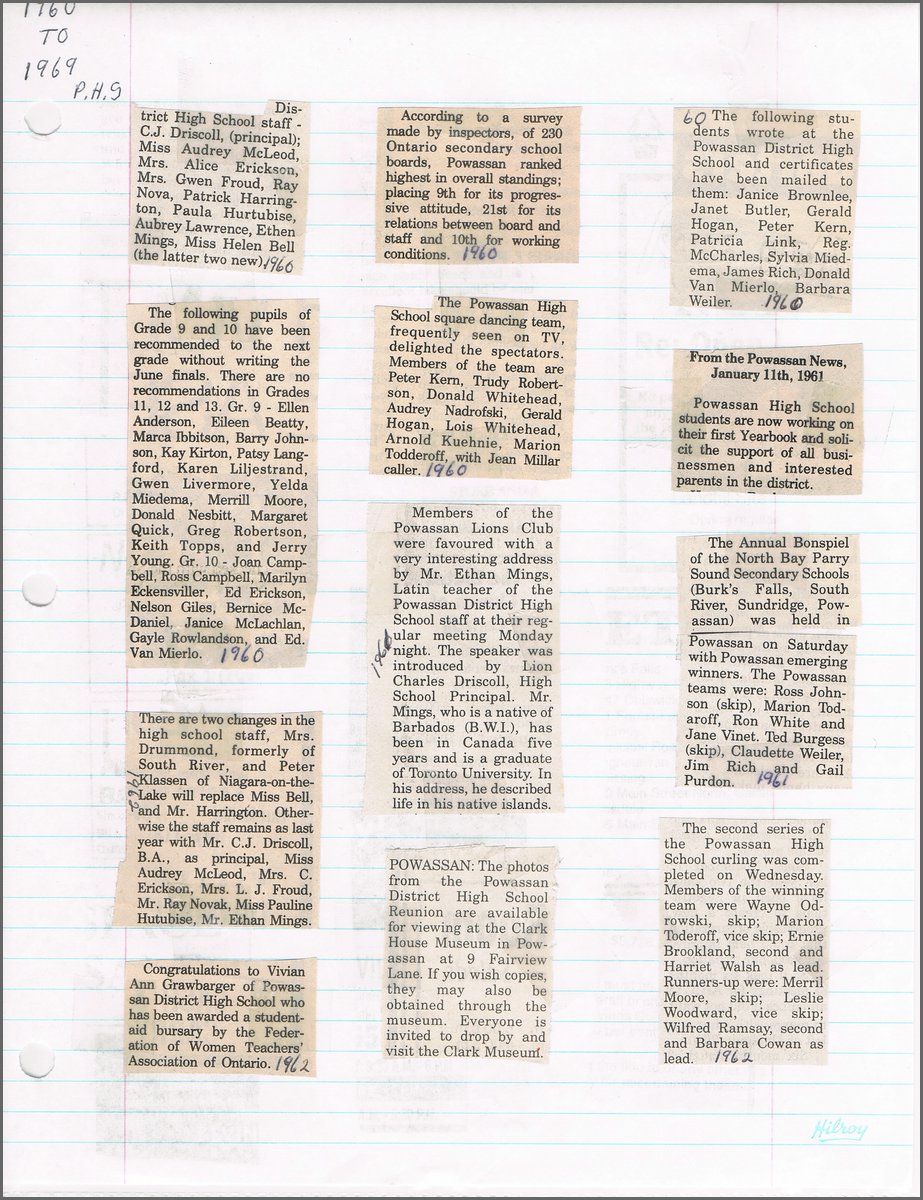 1960
TO
1969
P.H.S
Dis-
trict High School staff -
C.J. Driscoll, (principal);
Miss Audrey McLeod,
Mrs. Alice Erickson,
Mrs. Gwen Froud, Ray
Nova, Patrick Harring-
ton, Paula Hurtubise,
Aubrey Lawrence, Ethen
Mings, Miss Helen Bell
(the latter two new). 1960
The following pupils of
Grade 9 and 10 have been
recommended to the next
grade without writing the
June finals. There are no
recommendations in Grades
11, 12 and 13. Gr. 9 - Ellen
Anderson, Eileen Beatty,
Marca Ibbitson, Barry John-
son, Kay Kirton, Patsy Lang-
ford, Karen Liljestrand,
Gwen Livermore, Yelda
Miedema, Merrill Moore,
Donald Nesbitt, Margaret
Quick, Greg Robertson,
Keith Topps, and Jerry
Young. Gr. 10 - Joan Camp-
bell, Ross Campbell, Marilyn
Eckensviller, Ed Erickson,
Nelson Giles, Bernice Mc-
Daniel, Janice McLachlan,
Gayle Rowlandson, and Ed.
Van Mierlo. 1960
There are two changes in the
high school staff, Mrs.
Drummond, formerly of
South River, and Peter
Klassen of Niagara-on-the-
Lake will replace Miss Bell,
and Mr. Harrington. Other-
wise the staff remains as last
year with Mr. C.J. Driscoll,
B.A., as principal, Miss
Audrey McLeod, Mrs. C.
Erickson, Mrs. L. J. Froud,
Mr. Ray Novak, Miss Pauline
Hutubise, Mr. Ethan Mings.
1962
Congratulations to Vivian
Ann Grawbarger of Powas-
san District High School who
has been awarded a student-
aid bursary by the Feder-
ation of Women Teachers'
Association of Ontario. 1962
According to a survey
made by inspectors, of 230
Ontario secondary school
boards, Powassan ranked
highest in overall standings;
placing 9th for its progres-
sive attitude, 21st for its
relations between board and
staff and 10th for working
conditions. 1960
The Powassan High
School square dancing team,
frequently seen on TV,
delighted the spectators.
Members of the team are
Peter Kern, Trudy Robert-
son, Donald Whitehead,
Audrey Nadrofski, Gerald
Hogan, Lois Whitehead,
Arnold Kuehnie, Marion
Todderoff, with Jean Millar
caller. 1960
Members of the
Powassan Lions Club
were favoured with a
very interesting address
by Mr. Ethan Mings,
Latin teacher of the
Powassan District High
School staff at their reg-
ular meeting Monday
night. The speaker was
introduced by Lion
Charles Driscoll, High
School Principal. Mr.
Mings, who is a native of
Barbados (B.W.I.), has
been in Canada five
years and is a graduate
of Toronto University. In
his address, he described
life in his native islands.
POWASSAN: The photos
from the Powassan
District High School
Reunion are available
for viewing at the Clark
House Museum in Pow-
assan at 9 Fairview
Lane. If you wish copies,
they may also be
obtained through the
museum. Everyone is
invited to drop by and
visit the Clark Museum.
60 The following stu-
dents wrote at the
Powassan District High
School and certificates
have been mailed to
them: Janice Brownlee,
Janet Butler, Gerald
Hogan, Peter Kern,
Patricia Link, Reg.
McCharles, Sylvia Mied-
ema, James Rich, Donald
Van Mierlo, Barbara
Weiler. 1960
From the Powassan News,
January 11th, 1961
Powassan High School
students are now working on
their first Yearbook and soli-
cit the support of all busi-
nessmen and interested
parents in the district.
The Annual Bonspiel
of the North Bay Parry
Sound Secondary Schools
(Burk's Falls, South
River, Sundridge, Pow-
assan) was held in
Powassan on Saturday
with Powassan emerging
winners. The Powassan
teams were: Ross John-
son (skip), Marion Tod-
aroff, Ron White and
Jane Vinet. Ted Burgess
(skip), Claudette Weiler,
Jim Rich and Gail
Purdon. 1961
The second series of
the Powassan High
School curling was com-
pleted on Wednesday.
Members of the winning
team were Wayne Od-
rowski, skip; Marion
Toderoff, vice skip; Ernie
Brookland, second and
Harriet Walsh as lead.
Runners-up were: Merril
Moore, skip; Leslie
Woodward, vice skip;
Wilfred Ramsay, second
and Barbara Cowan as
lead. 1962
Hilroy